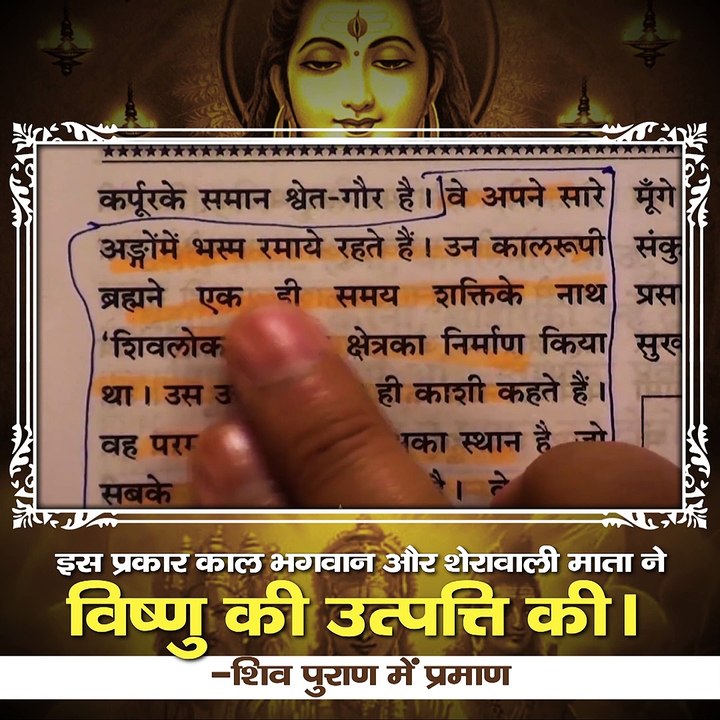 कर्पूरके समान श्वेत-गौर है। वे अपने सारे
अङ्गोंमें भस्म रमाये रहते हैं। उन कालरूपी
ब्रह्मने एक ही समय शक्तिके नाथ
'शिवलोक क्षेत्रका निर्माण किया
था। उस ही काशी कहते हैं।
वह स्थान है, जो
सबके
मूँगे
इस प्रकार काल भगवान और शेरावाली माता ने
विष्णु की उत्पत्ति की।
-शिव पुराण में प्रमाण